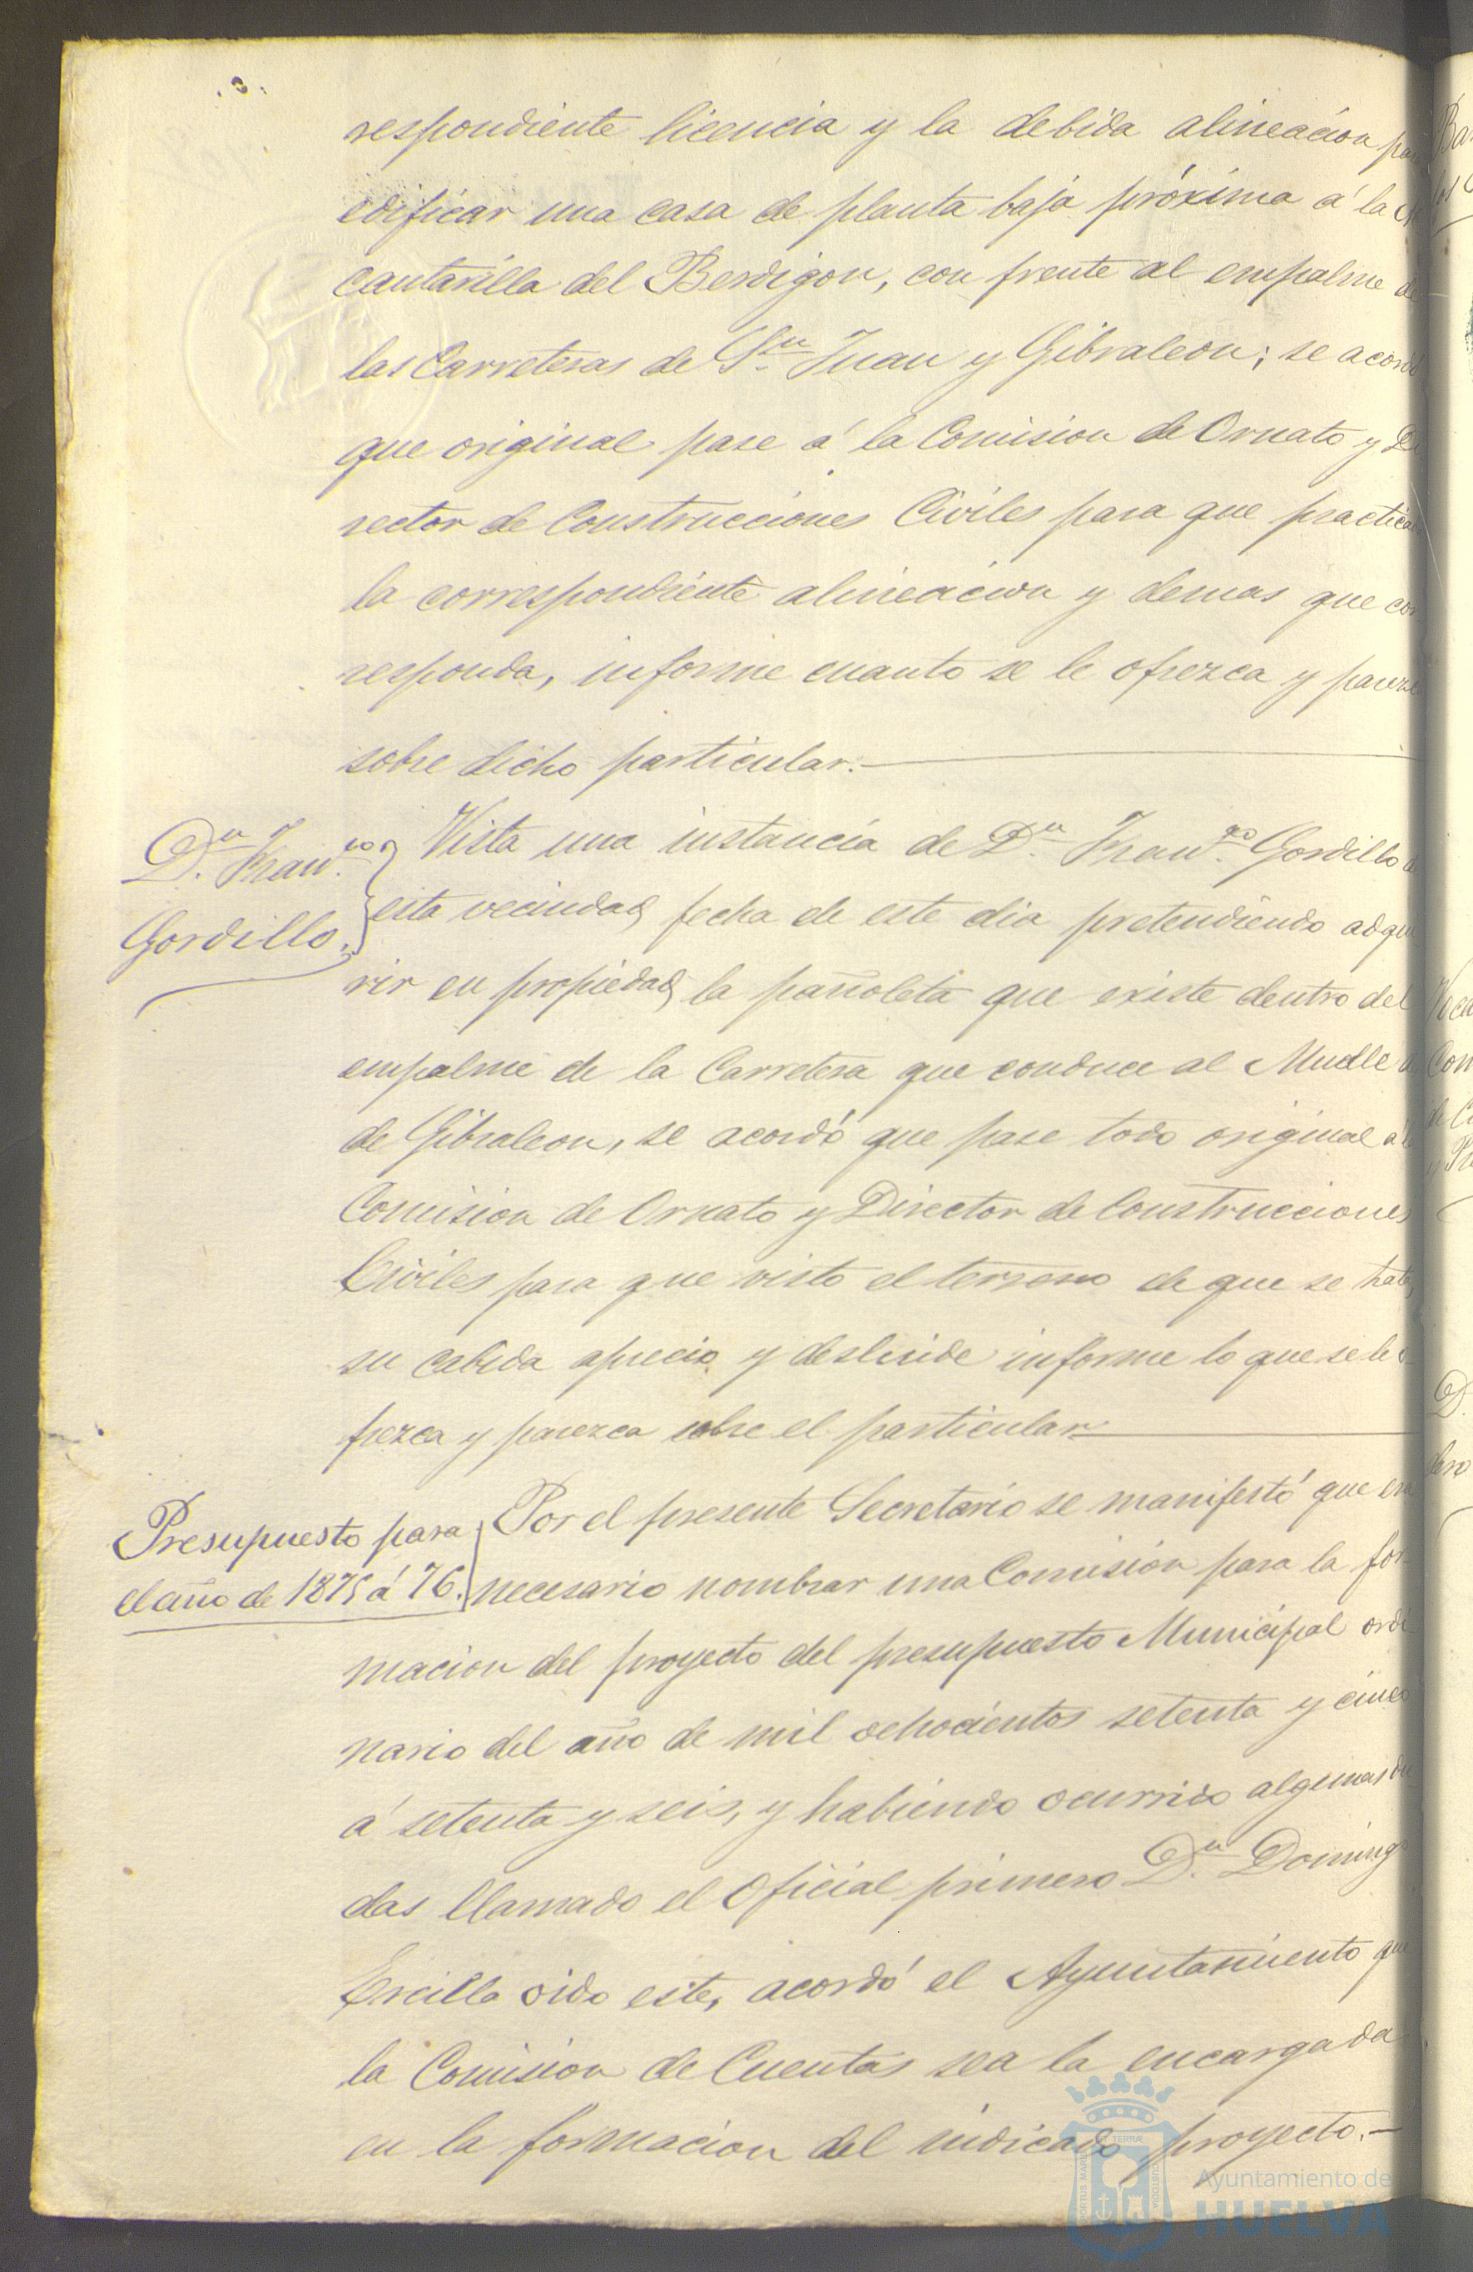 respondiente licencia y la debida alineacion pa
edificar una casa de planta baja próxima á la
cantarilla del Berdigon, con frente al empalme de
las Carreteras de Sn. Juan y Gibraleon; se acord
que original pase á la Comision de Ornato y Di
rector de Construcciones Civiles para que practica
la correspondiente alineacion y demas que cor
responda, informe cuanto se le ofrezca y parez
sobre dicho particular.
Dn. Franco.
Gordillo.
Vista una instancia de Dn. Franco. Gordillo de
esta vecindad fecha de este dia pretendiendo adqui
rir en propiedad la pañoleta que existe dentro del
empalme de la Carretera que conduce al Muelle
de Gibraleon, se acordó que pase todo original á
Comision de Ornato y Director de Construcciones
Civiles para que visto el terreno de que se trat
su cabida aprecio y deslinde informe lo que se le o
frezca y parezca sobre el particular
Presupuesto para
el año de 1875 á 76.
Por el presente Secretario se manifestó que era
necesario nombrar una Comision para la for
macion del proyecto del presupuesto Municipal ordi
nario del año de mil ochocientos setenta y cinco
á setenta y seis, y habiendo ocurrido algunas du
das llamado el Oficial primero Dn. Domingo
Ercilla oido este, acordó el Ayuntamiento que
la Comision de Cuentas sea la encargada
en la formacion del indicado proyecto.
Ayuntamiento de
HUELVA